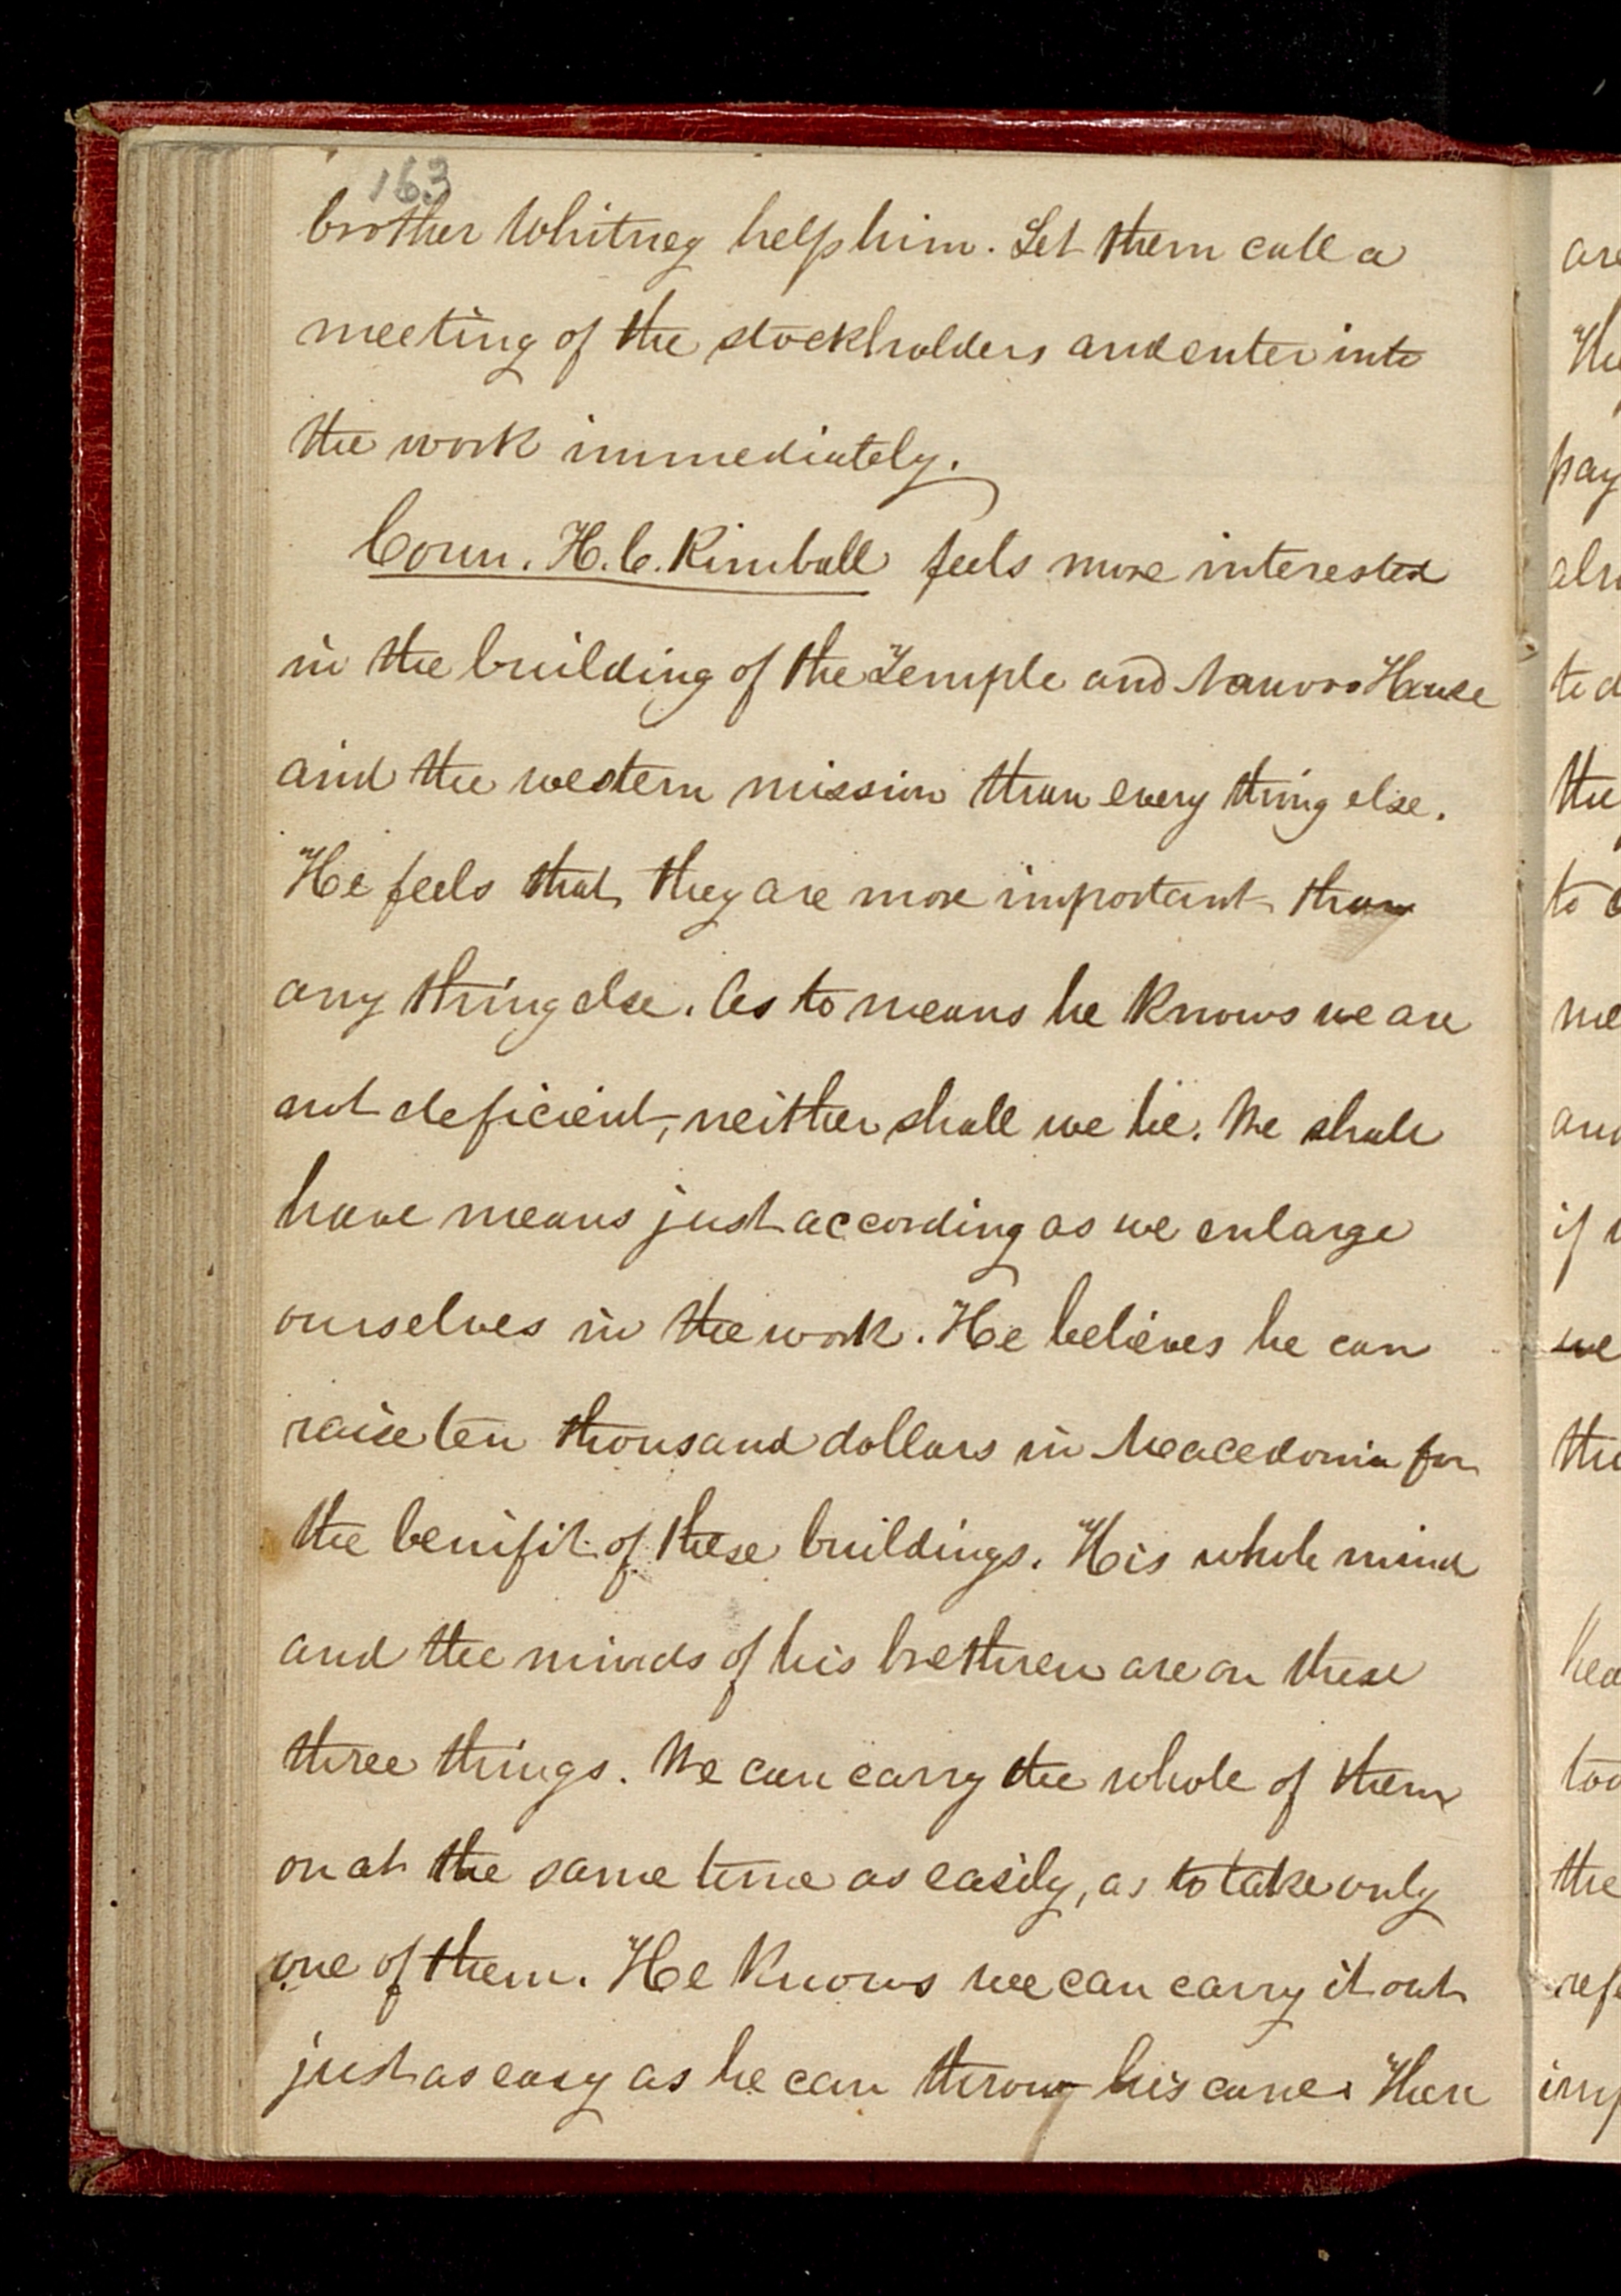 163
brother Whitney help him. Let them call a
meeting of the stockholders and enter into
the work immediately.
Coun. H. C. Kimball feels more interested
in the building of the Temple and Nauvoo House
and the western mission than every thing else.
He feels that they are more important than
any thing else. As to means he knows we are
not deficient, neither shall we be. We shall
have means just according as we enlarge
ourselves in the work. He believes he can
raise ten thousand dollars in Macedonia for
the benifit of these buildings. His whole mind
and the minds of his brethren are on these
three things. We can carry the whole of them
on at the same time as easily, as to take only
one of them. He knows we can carry it out
just as easy as he can throw his cane. There
are
The
pay
also
to d
the
to
me
and
if
we
the
hea
too
the
refe
imp